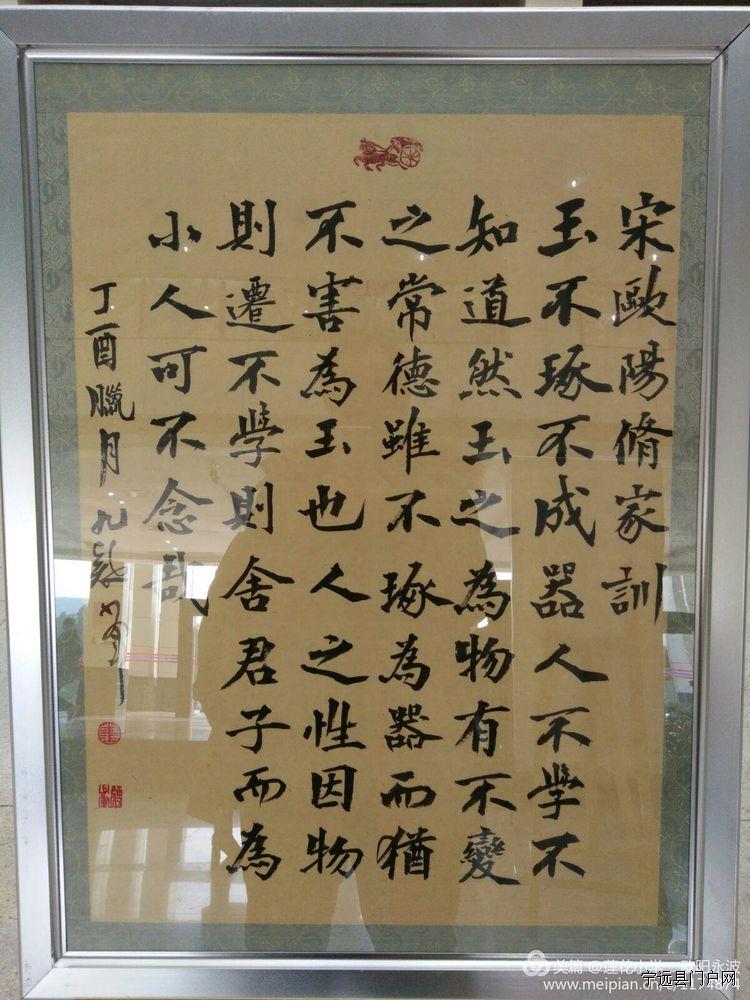 宋歐陽脩家訓
玉不琢不成器人不學不
知道然玉之為物有不變
之常德雖不琢為器而猶
不害為玉也人之性因物
則遷不學則舍君子而為
小人可不念哉
丁酉臘月九
美篇 @蓮花小学
阳永波
www.meipian.cn
宁远县门户网